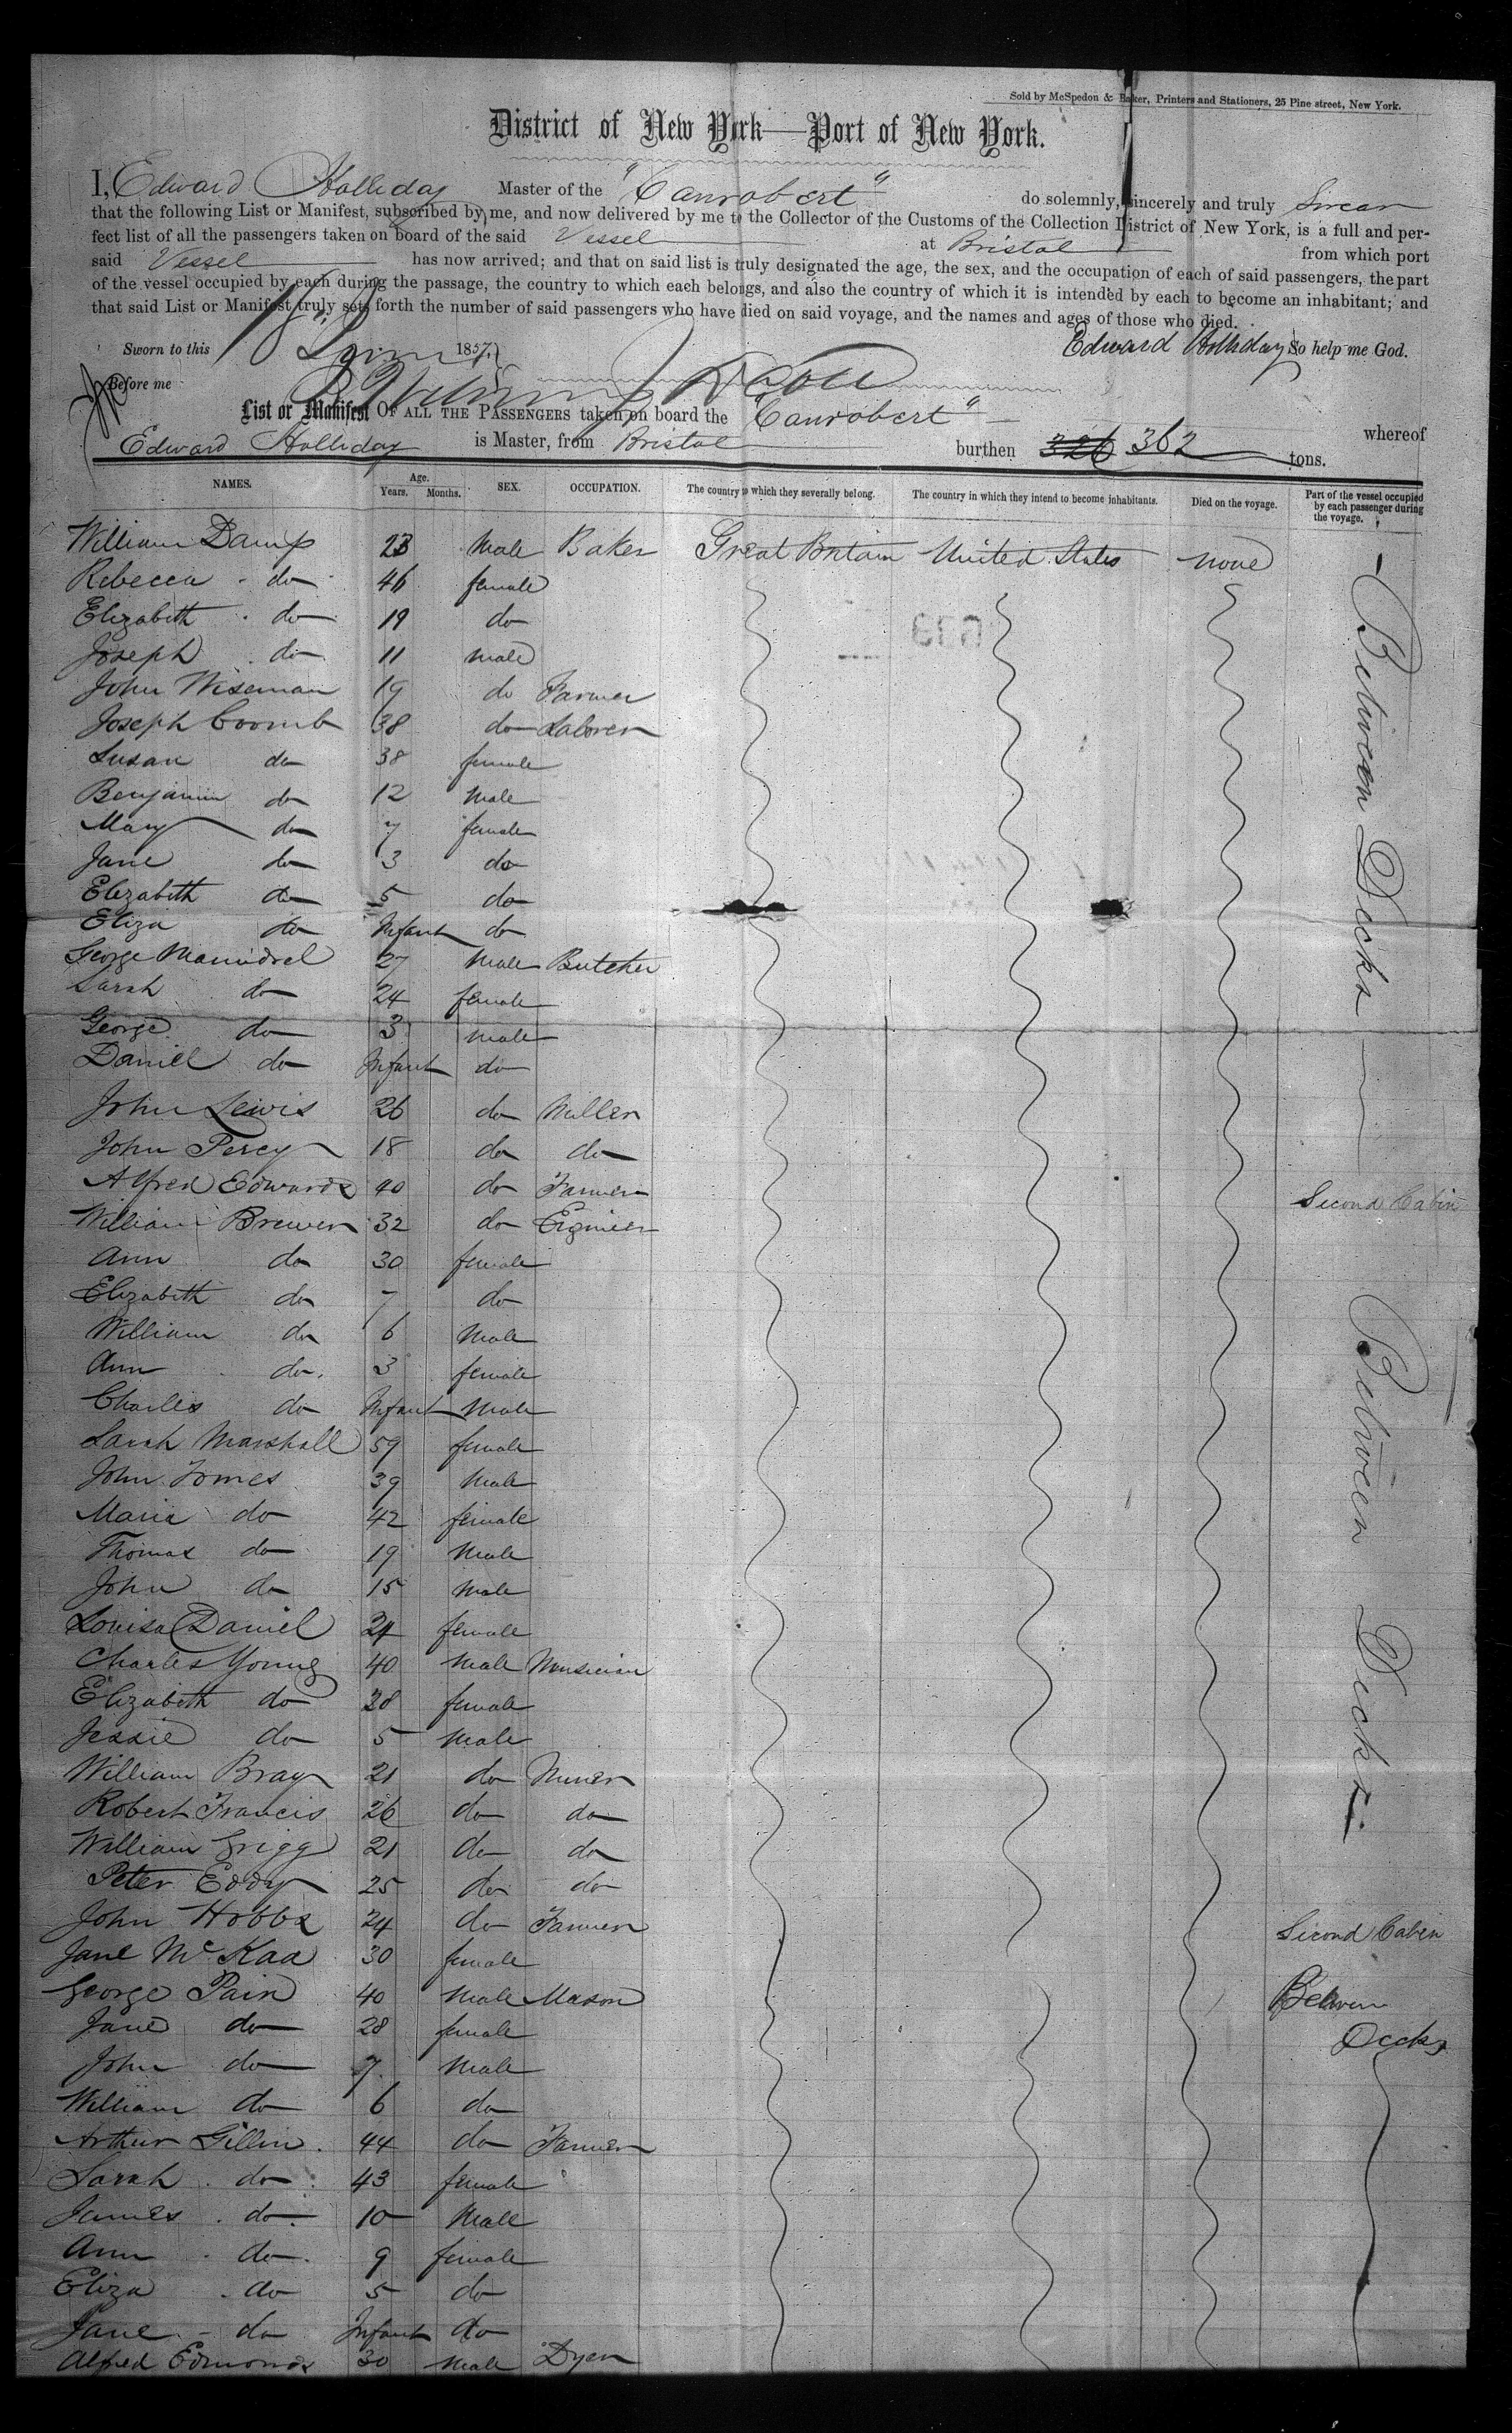 Sold by McSpedon & Baker, Printers and Stationers, 25 Pine street, New York.
District of New York—Port of New York.
I, Edward Holliday Master of the "Canrobert" do solemnly, sincerely and truly Swear
that the following List or Manifest, subscribed by me, and now delivered by me to the Collector of the Customs of the Collection District of New York, is a full and per-
fect list of all the passengers taken on board of the said Vessel at Bristol from which port
said Vessel has now arrived; and that on said list is truly designated the age, the sex, and the occupation of each of said passengers, the part
of the vessel occupied by each during the passage, the country to which each belongs, and also the country of which it is intended by each to become an inhabitant; and
that said List or Manifest truly sets forth the number of said passengers who have died on said voyage, and the names and ages of those who died.
Sworn to this 18 1857 Edward Holliday So help me God.
Before me
List or Manifest OF ALL THE PASSENGERS taken on board the "Canrobert" whereof
Edward Holliday is Master, from Bristol burthen 326 362 tons.
NAMES. Age. Years. Months. SEX. OCCUPATION. The country to which they severally belong. The country in which they intend to become inhabitants. Died on the voyage. Part of the vessel occupied by each passenger during the voyage.
William Damp 23 Male Baker Great Britain United States none Between Decks
Rebecca do 46 female
Elizabeth do 19 do
Joseph do 11 male
John Wiseman 19 do Farmer
Joseph Coomb 38 do Laborer
Susan do 38 female
Benjamin do 12 Male
Mary do 7 female
Jane do 3 do
Elizabeth do 5 do
Eliza do Infant do
George Manndrel 27 Male Butcher
Sarah do 24 female
George do 3 male
Daniel do Infant do
John Lewis 26 do Miller
John Percy 18 do do
Alfred Edwards 40 do Farmer Second Cabin
William Brewer 32 do Engineer Between Decks
Ann do 30 female
Elizabeth do 7 do
William do 6 Male
Ann do. 3 female
Charles do Infant Male
Sarah Marshall 59 female
John Tomes 39 Male
Maria do 42 female
Thomas do 19 Male
John do 15 Male
Louisa Daniel 24 female
Charles Young 40 Male Musician
Elizabeth do 28 female
Jessie do 5 Male
William Bray 21 do Miner
Robert Francis 26 do do
William Grigg 21 do do
Peter Eddy 25 do do
John Hobbs 24 do Farmer Second Cabin
Jane McKaa 30 female
George Pain 40 Male Mason Between
Jane do 28 female Decks
John do 7. Male
William do 6 do
Arthur Gillin 44 do Farmer
Sarah do 43 female
James do 10 Male
Ann do 9 female
Eliza do 5 do
Jane do Infant do
Alfred Edmonds 30 Male Dyer